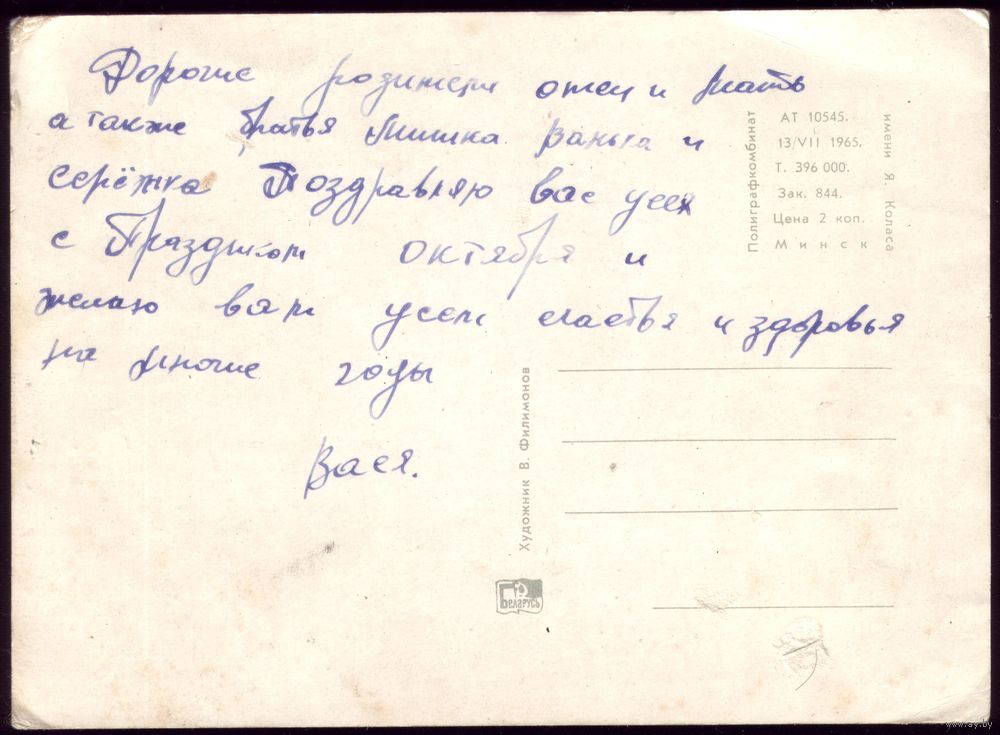 Дорогие родители отец и мать
а также братья Мишка Ванька и
серёжка Поздравляю вас усех
с Праздником октября и
желаю вам усем счастья и здоровья
на многие годы
Вася.
Полиграфкомбинат
АТ 10545.
13/VII 1965.
Т. 396 000.
Зак. 844.
Цена 2 коп.
Минск
имени Я. Коласа
Художник В. Филимонов
Беларусь
www.ay.by